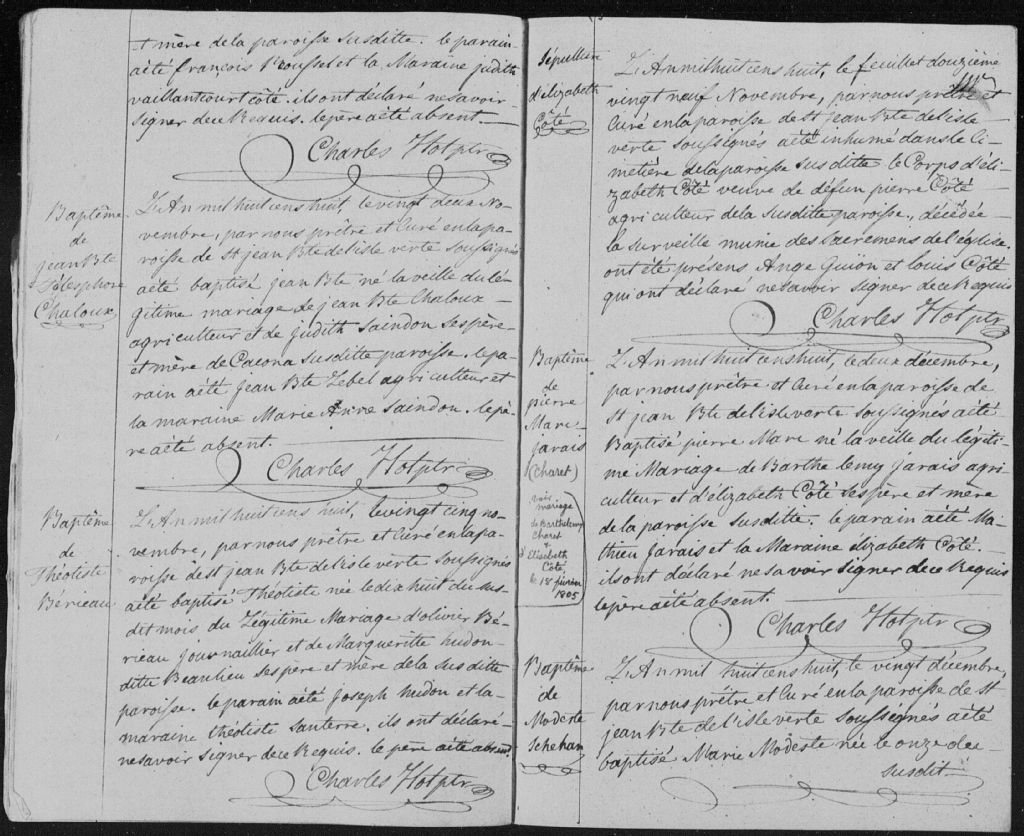 et mère de la paroisse susditte. le parain
aété françois Roussel et la Maraine judith
vaillantcourt côté. ils ont déclaré ne savoir
signer de ce Requis. le père aété absent.
Charles Hot ptr
Baptême
de
jean Bte
Télesphore
Chaloux
L'An mil huit cens huit le vingt deux No-
vembre, par nous prêtre et Curé en la pa-
roisse de st jean Bte de l'isle verte soussignés
aété baptisé jean Bte né la veille du lé-
gitime mariage de jean Bte Chaloux
agriculteur et de judith Saindon ses père
et mère de Cacona susditte paroisse. le pa-
rain aété jean Bte Lebel agriculteur et
la maraine Marie Anne Saindon. le pè-
re aété absent.
Charles Hot ptr
Baptême
de
Théotiste
Bérieau
L'An mil huit cens huit, le vingt cinq no-
vembre, par nous prêtre et Curé en la pa-
roisse de st jean Bte de l'isle verte soussignés
aété baptisé Théotiste née le dix huit du sus-
dit mois du Légitime Mariage d'olivier Bé-
rieau journaillier et de Margueritte hudon
ditte Beaulieu ses père et mère de la susditte
paroisse. le parain aété joseph hudon et la
maraine théotiste santerre. ils ont déclaré
ne savoir signer de ce Requis. le père aété absent.
Charles Hot ptr
Sépulture
d'élizabeth
Côté
L'An mil huit cens huit, le feuillet douzième
vingt neuf Novembre, par nous prêtre et
Curé en la paroisse de St jean Bte de l'isle
verte soussignés aété inhumé dans le Ci-
metière de la paroisse susditte le Corps d'éli-
zabeth Côté veuve de défun pierre Côté
agriculteur de la susditte paroisse, décédée
la surveille munie des sacremens de l'église.
ont été présens Ange Guion et louis Côté
qui ont déclaré ne savoir signer de ce Requis
Charles Hot ptr
Baptême
de
pierre
Marc
jarais
(Charet)
voir
mariage
de Barthelemy
Charet
&
d'Elisabeth
Côté,
le 18 février
1805
L'An mil huit cens huit, le deux décembre,
par nous prêtre et Curé en la paroisse de
St jean Bte de l'isle verte soussignés aété
Baptisé pierre Marc né la veille du légiti-
me Mariage de Barthelemy jarais agri-
culteur et d'élizabeth Côté ses père et mère
de la paroisse susditte. le parain aété Ma-
thieu jarais et la Maraine élizabeth Côté.
ils ont déclaré ne savoir signer de ce Requis
le père aété absent.
Charles Hot ptr
Baptême
de
Modeste
Schehan
L'An mil huit cens huit, le vingt décembre,
par nous prêtre et Curé en la paroisse de St
jean Bte de l'isle verte soussignés aété
baptisé Marie Modeste née le onze du
susdit